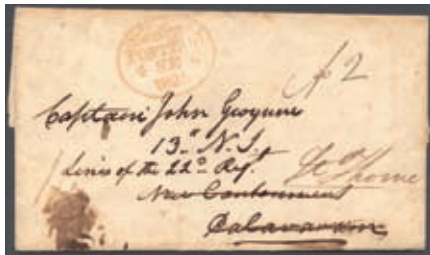 A 2
Captain John Gwynne
13th N. I.
Lines of the 22d Reg.
St Thome
New Cantonment
Palavaram